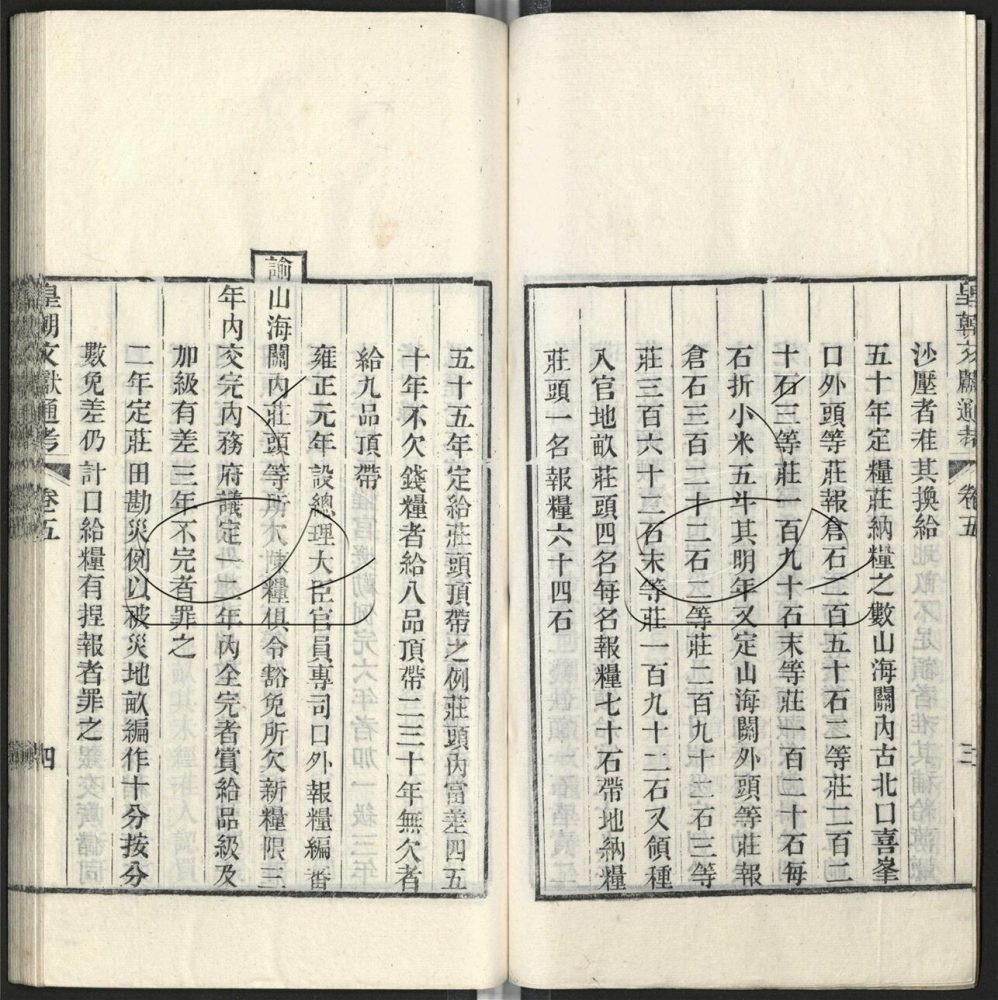 皇朝文獻通考 卷五 三
沙壓者准其換給
五十年定糧莊納糧之數山海關內古北口喜峯
口外頭等莊報倉石二百五十石二等莊二百二
十石三等莊一百九十石末等莊一百二十石每
石折小米五斗其明年又定山海關外頭等莊報
倉石三百二十二石二等莊二百九十二石三等
莊三百六十二石末等莊一百九十二石又領種
入官地畝莊頭四名每名報糧七十石帶地納糧
莊頭一名報糧六十四石
五十五年定給莊頭頂帶之例莊頭內當差四五
十年不欠錢糧者給八品頂帶二三十年無欠者
給九品頂帶
雍正元年設總理大臣官員專司口外報糧編審
諭山海關內莊頭等所欠陳糧俱令豁免所欠新糧限三
年內交完內務府議定一二年內全完者賞給品級及
加級有差三年不完者罪之
二年定莊田勘災例以被災地畝編作十分按分
數免差仍計口給糧有捏報者罪之
皇朝文獻通考 卷五 四